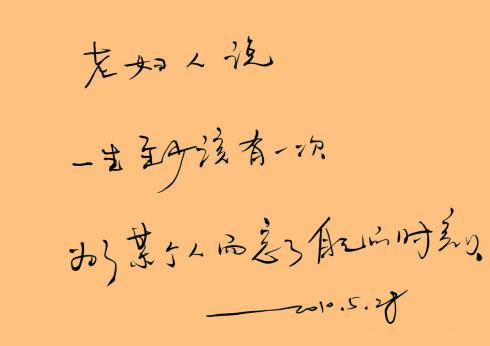 老妇人说
一生至少该有一次
为了某个人而忘了自己的时刻
——2010.5.28